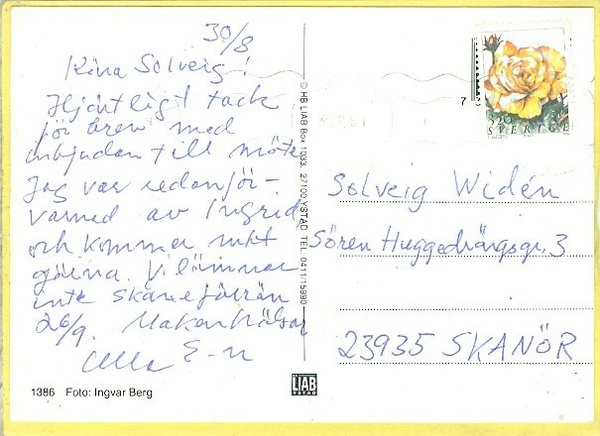 30/8
Kära Solveig!
Hjärtligt tack
för brev med
inbjudan till möte
Jag var redan för-
varned av Ingrid
och kommer mkt
gärna. Vi lämnar
inte Skåne förrän
26/9. Makan hälsar
Ulla E-n
1386 Foto: Ingvar Berg
© HB LIAB Box 1033, 27100 YSTAD TEL. 0411/15990
LIAB
YSTAD
3.20
SVERIGE
Solveig Widén
Sören Huggedrängsgr. 3
23935 SKANÖR